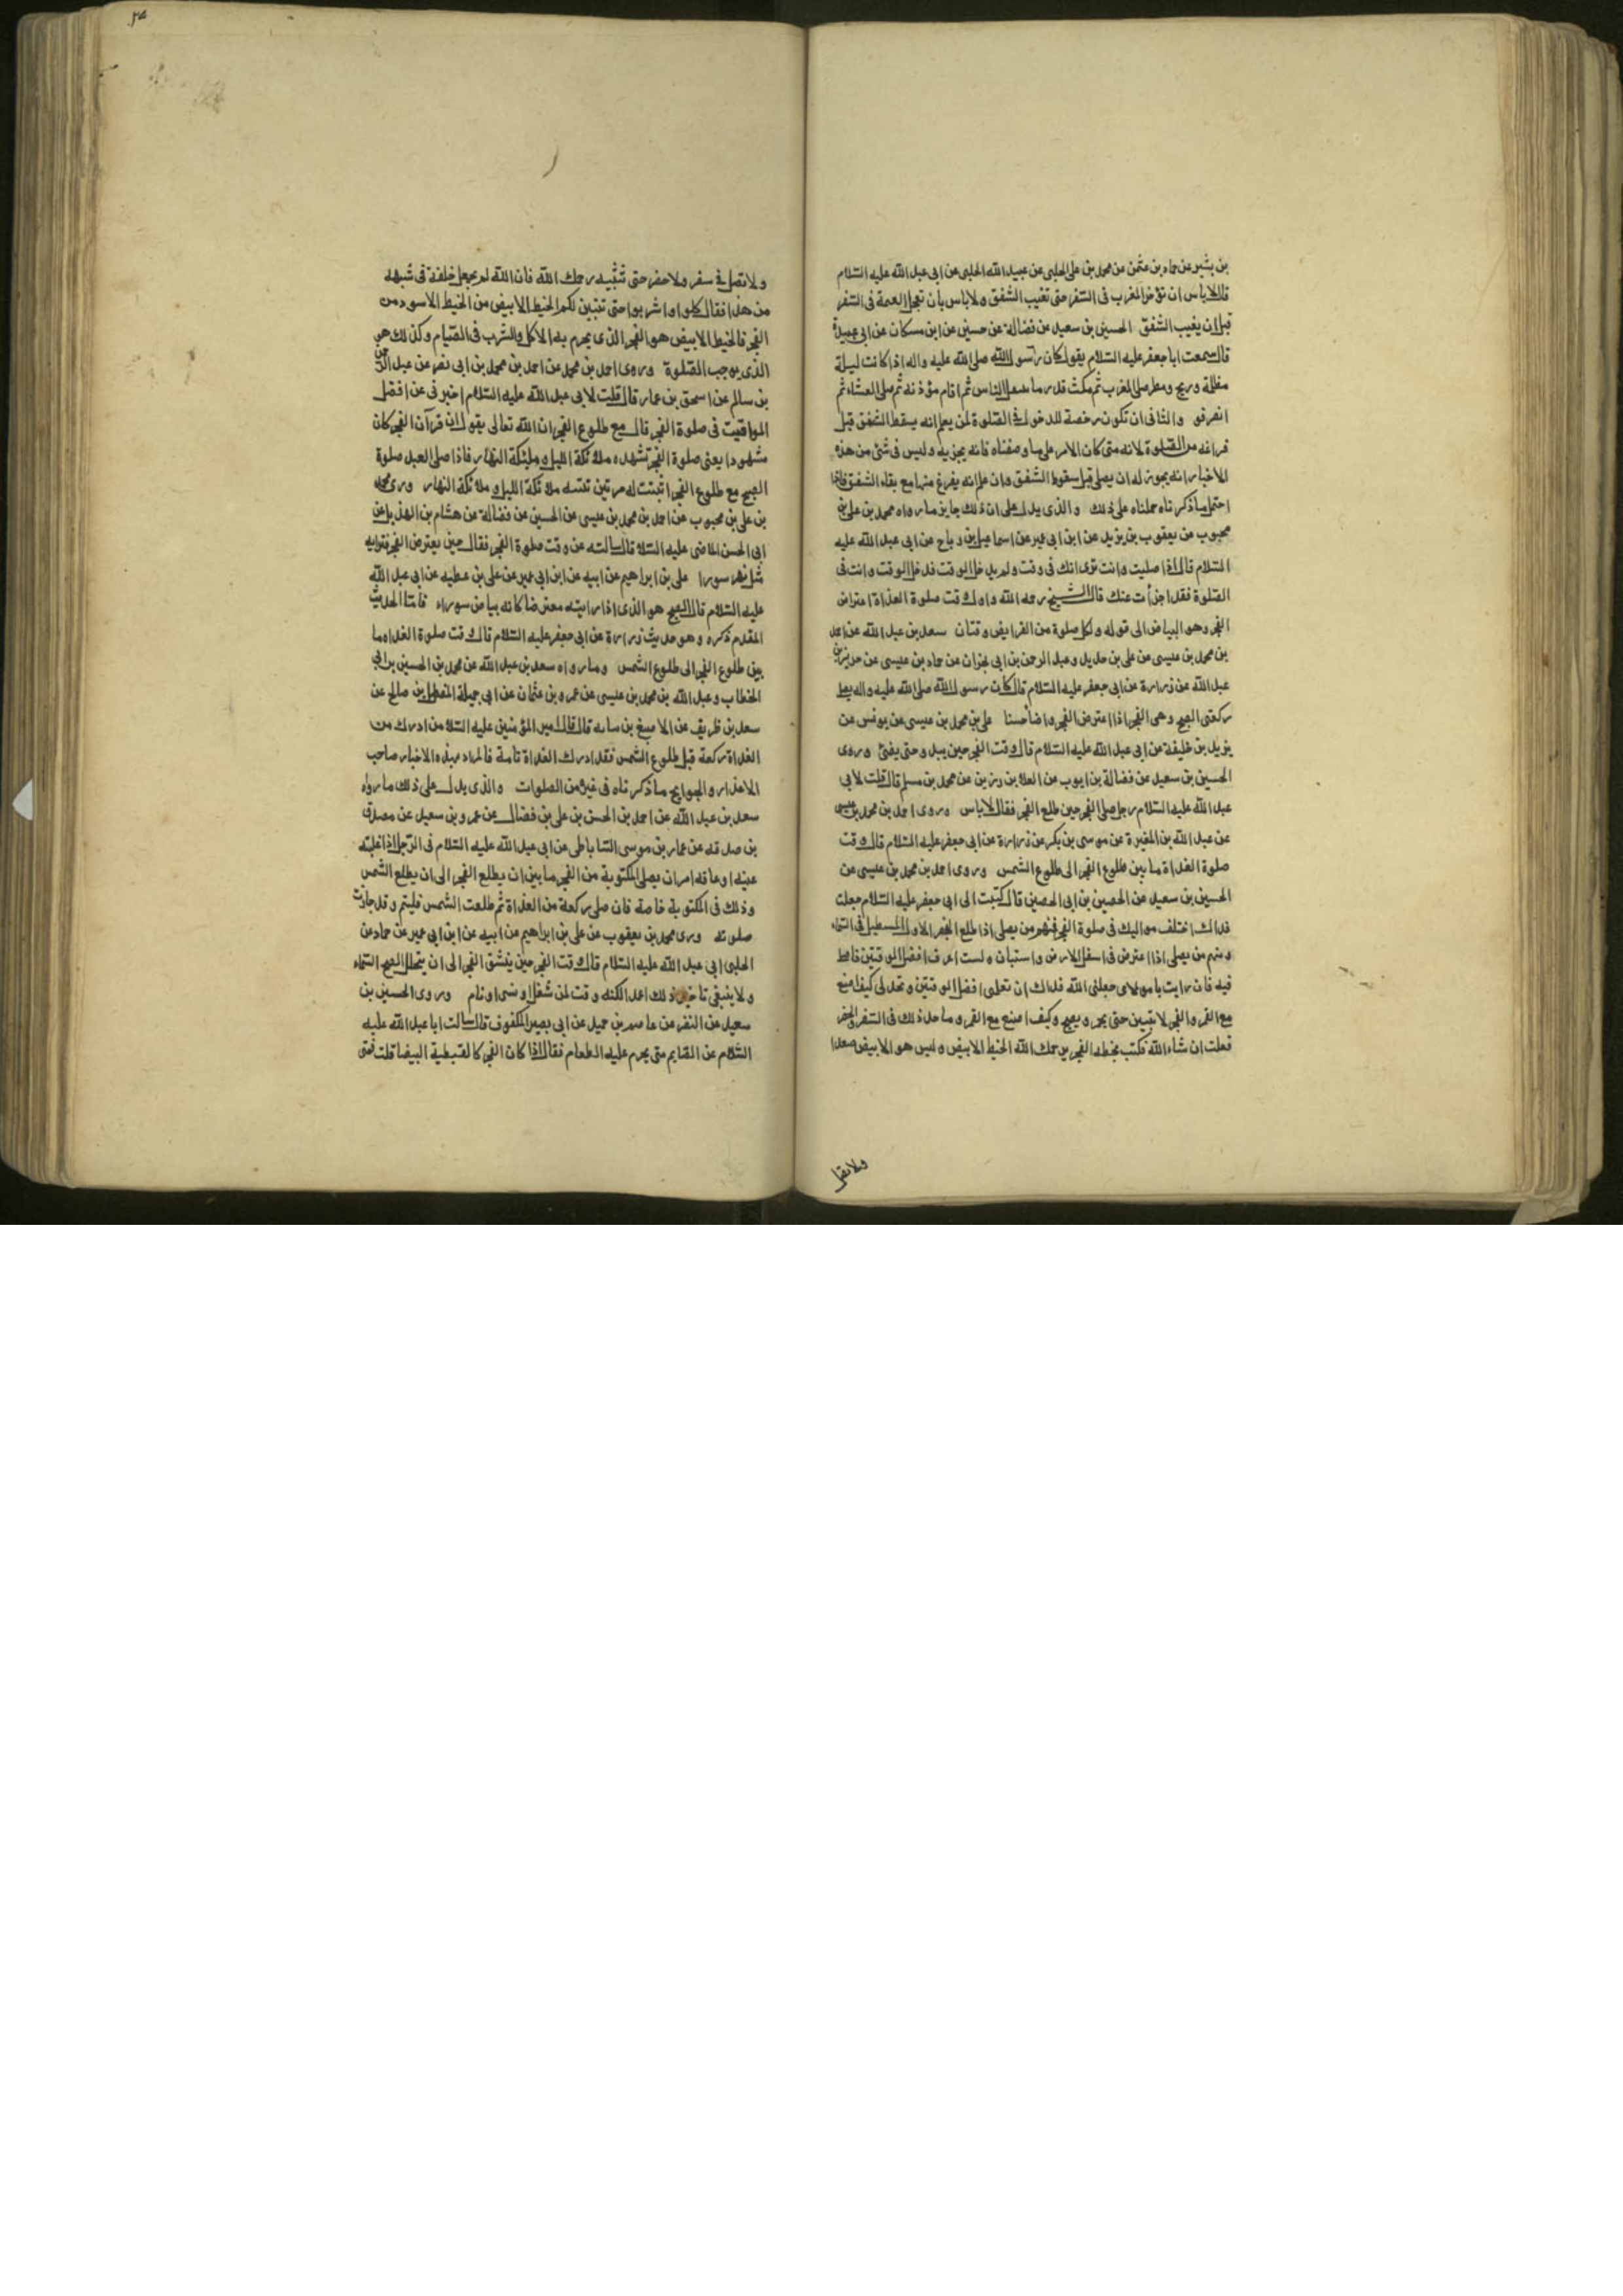 بن بشير عن حماد بن عثمن عن محمد بن على الحلبى عن عبيد الله الحلبى عن ابى عبد الله عليه السّلام
قال لاباس ان تؤخر المغرب فى السّفر حتى تغيب الشّفق ولاباس بان تعجل العتمة فى السّفر
قبل ان يغيب الشّفق الحسين بن سعيد عن فضالة عن حسين عن ابن مسكان عن ابى عبيدة
قال سمعت ابا جعفر عليه السّلام يقول كان رسول الله صلى الله عليه واله اذا كانت ليلة
مظلمة وريح ومطر صلى المغرب ثم مكث قدر ما يتنفل الناس ثم اقام مؤذنه ثم صلى العشاء ثم
انصرفو والثانى ان تكون رخصة للدخول فى الصّلوة لمن يعلم انه يسقط الشفق قبل
فراغه من الصّلوة لانه متى كان الامر على ما وصفناه فانه يجزيه وليس فى شئ من هذه
الاخبار انه يجوز له ان يصلى قبل سقوط الشّفق وان علم انه يفرغ منها مع بقاء الشفق فاذا
احتمل ما ذكرناه حملناه على ذلك والذى يدل على ان ذلك جايز ما رواه محمد بن على بن
محبوب عن يعقوب بن يزيد عن ابن ابى عمير عن اسماعيل بن رباح عن ابى عبد الله عليه
السّلام قال اذا صليت وانت ترى انك فى وقت ولم يدخل الوقت فدخل الوقت وانت فى
الصّلوة فقد اجزأت عنك قال الشيخ رحمه الله واول وقت صلوة الغداة اعتراض
الفجر وهو البياض الى قوله ولكل صلوة من الفرايض وقتان سعد بن عبد الله عن احمد
بن محمد بن عيسى عن على بن حديد وعبد الرحمن بن ابى نجران عن حماد بن عيسى عن حريز بن
عبد الله عن زرارة عن ابى جعفر عليه السّلام قال كان رسول الله صلى الله عليه واله يصلى
ركعتى الصبح وهى الفجر اذا اعترض الفجر واضا حسنا على بن محمد بن عيسى عن يونس عن
يزيد بن خليفة عن ابى عبد الله عليه السّلام قال وقت الفجر حين يبدو حتى يضئ وروى
الحسين بن سعيد عن فضالة بن ايوب عن العلا بن رزين عن محمد بن مسلم قال قلت لابى
عبد الله عليه السّلام رجل صلى الفجر حين طلع الفجر فقال لاباس وروى احمد بن محمد بن عيسى
عن عبد الله بن المغيرة عن موسى بن بكر عن زرارة عن ابى جعفر عليه السّلام قال وقت
صلوة الغداة ما بين طلوع الفجر الى طلوع الشّمس وروى احمد بن محمد بن عيسى عن
الحسين بن سعيد عن الحصين بن ابى الحصين قال كتبت الى ابى جعفر عليه السّلام جعلت
فداك اختلف مواليك فى صلوة الفجر فمنهم من يصلى اذا طلع الفجر الاول المستطيل فى السّماء
ومنهم من يصلى اذا اعترض فى اسفل الارض واستبان ولست اعرف افضل الوقتين فاصلى
فيه فان رايت يا مولاى جعلنى الله فداك ان تعلمنى افضل الوقتين وتحد لى كيف اصنع
مع القمر والفجر لا تبيين حتى يحمر ويصبح وكيف اصنع مع القمر وما حد ذلك فى السّفر والحضر
فعلت ان شاء الله فكتب بخطه الفجر يرحمك الله الخيط الابيض وليس هو الابيض صعدا
ولاتصل
ولاتصل فى سفر ولاحضر حتى تتبينه رحمك الله فان الله لم يجعل خلقه فى شبهه
من هذا فقال كلوا واشربوا حتى تتبين لكم الخيط الابيض من الخيط الاسود من
الفجر فالخيط الابيض هو الفجر الذى يحرم به الاكل والشرب فى الصّيام وكذلك هو
الذى يوجب الصّلوة وروى احمد بن محمد عن احمد بن محمد بن ابى نصر عن عبد الرحمن
بن سالم عن اسحق بن عمار قال قلت لابى عبد الله عليه السّلام اخبرنى عن افضل
المواقيت فى صلوة الفجر قال مع طلوع الفجر ان الله تعالى يقول ان قرآن الفجر كان
مشهودا يعنى صلوة الفجر تشهده ملائكة الليل وملئكة النهار فاذا صلى العبد صلوة
الصبح مع طلوع الفجر اثبتت له مرتين تثبته ملائكة الليل وملائكة النهار وروى محمد
بن على بن محبوب عن احمد بن محمد بن عيسى عن الحسين عن فضالة عن هشام بن الهذيل عن
ابى الحسن الماضى عليه السّلام قال سالته عن وقت صلوة الفجر فقال حين يعترض الفجر فتراه
مثل نهر سورا على بن ابراهيم عن ابيه عن ابن ابى عمير عن على بن عطيه عن ابى عبد الله
عليه السّلام قال الصبح هو الذى اذا رايته معترضا كانه بياض سوراء فامّا الحديث
المقدم ذكره وهو حديث زرارة عن ابى جعفر عليه السّلام قال وقت صلوة الغداه ما
بين طلوع الفجر الى طلوع الشمس وما رواه سعد بن عبد الله عن محمد بن الحسين بن ابى
الخطاب وعبد الله بن محمد بن عيسى عن عمرو بن عثمان عن ابى جميلة المفضل بن صالح عن
سعد بن ظريف عن الاصبغ بن نباته قال قال امير المؤمنين عليه السّلام من ادرك من
الغداة ركعة قبل طلوع الشّمس فقد ادرك الغداة تامة فالمراد بهذه الاخبار صاحب
الاعذار والحوايج ما ذكرناه فى غيره من الصلوات والذى يدل على ذلك ما رواه
سعد بن عبد الله عن احمد بن الحسن بن على بن فضال عن عمرو بن سعيد عن مصدق
بن صدقه عن عمار بن موسى السّاباطى عن ابى عبد الله عليه السّلام فى الرّجل اذا غلبته
عينه او عاقه امر ان يصلى المكتوبة من الفجر ما بين ان يطلع الفجر الى ان يطلع الشمس
وذلك فى المكتوبة خاصة فان صلى ركعة من الغداة ثم طلعت الشمس فليتم وقد جازت
صلوته وروى محمد بن يعقوب عن على بن ابراهيم عن ابيه عن ابن ابى عمير عن حماد عن
الحلبى ابى عبد الله عليه السّلام قال وقت الفجر حين ينشق الفجر الى ان يتجلل الصبح السّماء
ولاينبغى تاخير ذلك عمدا لكنه وقت لمن شغل او نسى او نام وروى الحسين بن
سعيد عن النضر عن عاصم بن حميد عن ابى بصير المكفوف قال سالت ابا عبد الله عليه
السّلام عن الصّايم متى يحرم عليه الطعام فقال اذا كان الفجر كالقبطية البيضا قلت فمتى